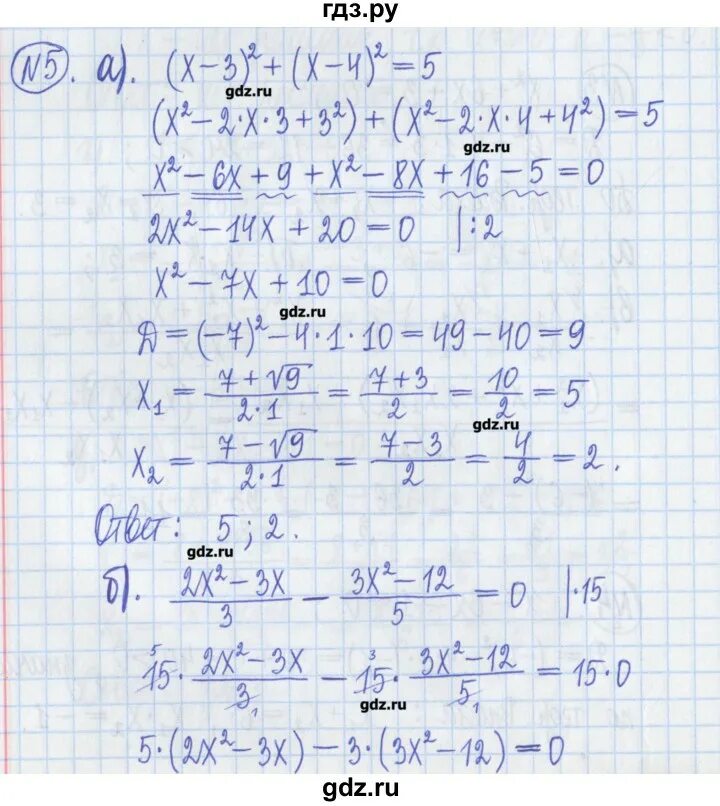 гдз.ру
№5. а). (x-3)² + (x-4)² = 5
gdz.ru
(x² - 2·x·3 + 3²) + (x² - 2·x·4 + 4²) = 5
gdz.ru
x² - 6x + 9 + x² - 8x + 16 - 5 = 0
2x² - 14x + 20 = 0 |:2
x² - 7x + 10 = 0
gdz.ru
Д = (-7)² - 4·1·10 = 49 - 40 = 9
x₁ = (7+√9)/(2·1) = (7+3)/2 = 10/2 = 5
gdz.ru
x₂ = (7-√9)/(2·1) = (7-3)/2 = 4/2 = 2.
Ответ: 5; 2.
gdz.ru
б). (2x² - 3x)/3 - (3x² - 12)/5 = 0 |·15
gdz.ru
⁵15 · (2x² - 3x)/3₁ - ³15 · (3x² - 12)/5₁ = 15·0
gdz.ru
5·(2x² - 3x) - 3·(3x² - 12) = 0
gdz.ru